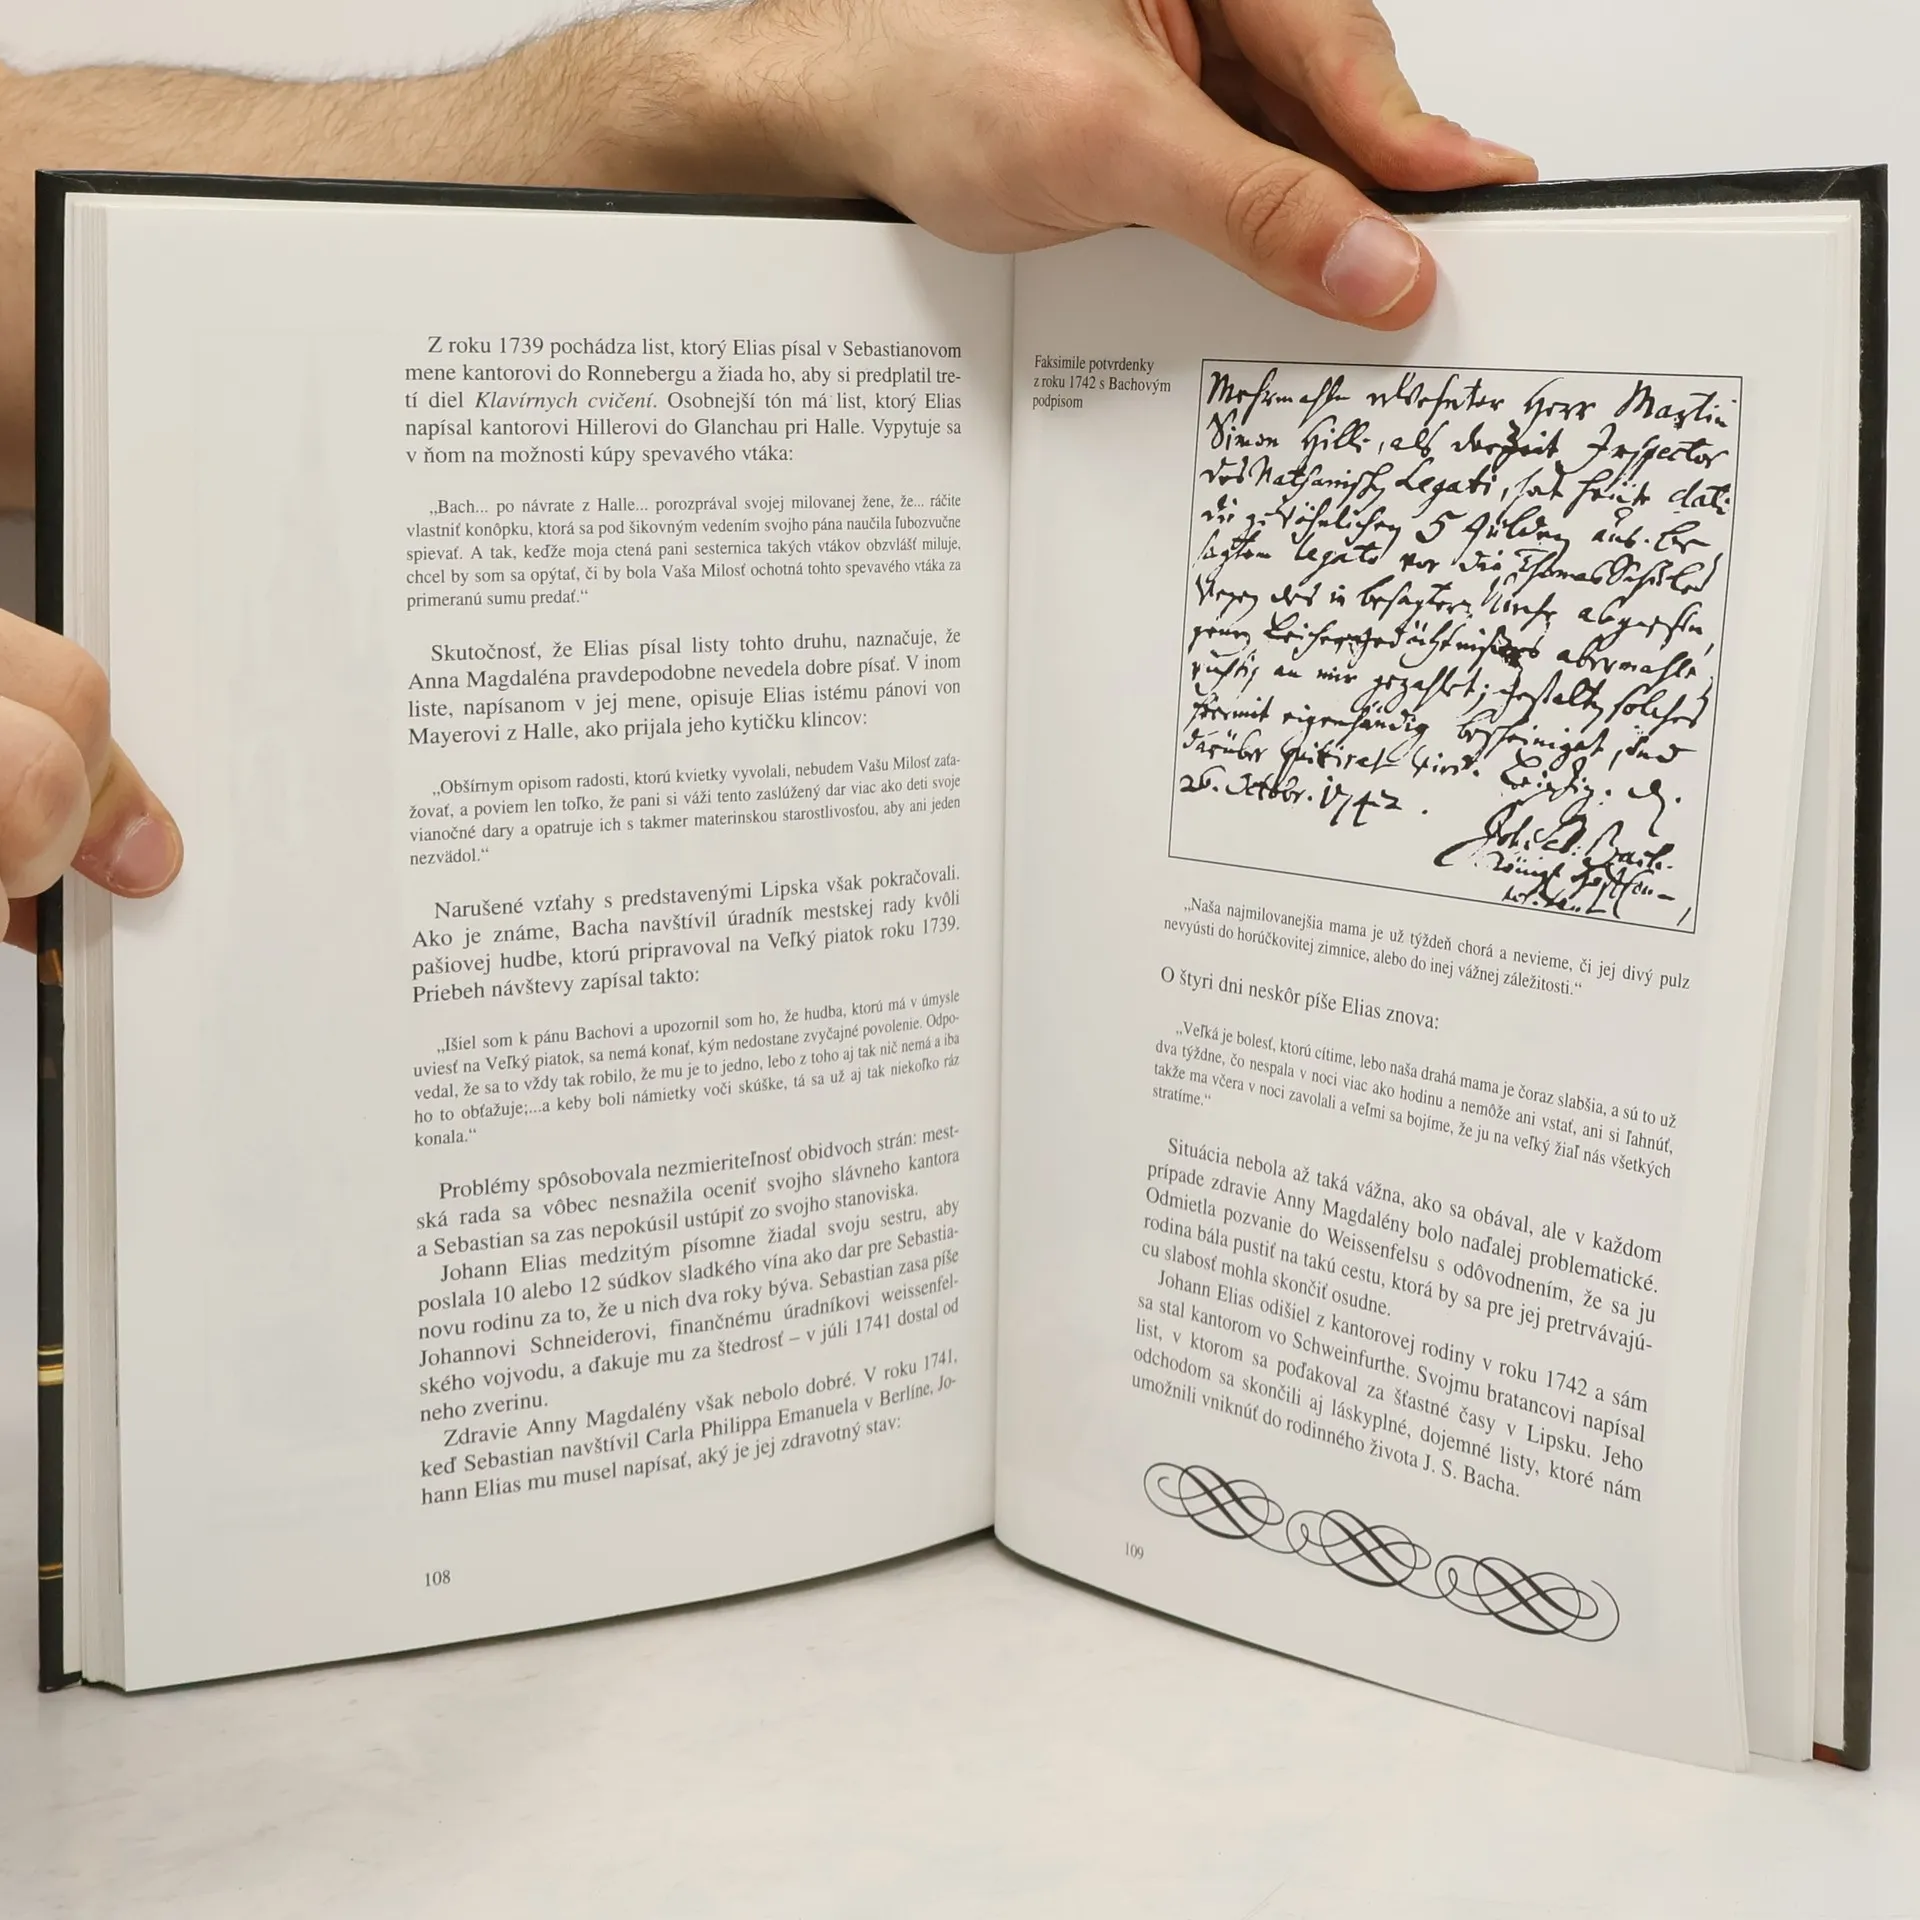 Z roku 1739 pochádza list, ktorý Elias písal v Sebastianovom
mene kantorovi do Ronnebergu a žiada ho, aby si predplatil tre-
tí diel Klavírnych cvičení. Osobnejší tón má list, ktorý Elias
napísal kantorovi Hillerovi do Glanchau pri Halle. Vypytuje sa
v ňom na možnosti kúpy spevavého vtáka:
„Bach... po návrate z Halle... porozprával svojej milovanej žene, že... ráčite
vlastniť konôpku, ktorá sa pod šikovným vedením svojho pána naučila ľubozvučne
spievať. A tak, keďže moja ctená pani sesternica takých vtákov obzvlášť miluje,
chcel by som sa opýtať, či by bola Vaša Milosť ochotná tohto spevavého vtáka za
primeranú sumu predať.“
Skutočnosť, že Elias písal listy tohto druhu, naznačuje, že
Anna Magdaléna pravdepodobne nevedela dobre písať. V inom
liste, napísanom v jej mene, opisuje Elias istému pánovi von
Mayerovi z Halle, ako prijala jeho kytičku klincov:
„Obšírnym opisom radosti, ktorú kvietky vyvolali, nebudem Vašu Milosť zaťa-
žovať, a poviem len toľko, že pani si váži tento zaslúžený dar viac ako deti svoje
vianočné dary a opatruje ich s takmer materinskou starostlivosťou, aby ani jeden
nezvädol.“
Narušené vzťahy s predstavenými Lipska však pokračovali.
Ako je známe, Bacha navštívil úradník mestskej rady kvôli
pašiovej hudbe, ktorú pripravoval na Veľký piatok roku 1739.
Priebeh návštevy zapísal takto:
„Išiel som k pánu Bachovi a upozornil som ho, že hudba, ktorú má v úmysle
uviesť na Veľký piatok, sa nemá konať, kým nedostane zvyčajné povolenie. Odpo-
vedal, že sa to vždy tak robilo, že mu je to jedno, lebo z toho aj tak nič nemá a iba
ho to obťažuje;...a keby boli námietky voči skúške, tá sa už aj tak niekoľko ráz
konala.“
Problémy spôsobovala nezmieriteľnosť obidvoch strán: mest-
ská rada sa vôbec nesnažila oceniť svojho slávneho kantora
a Sebastian sa zas nepokúsil ustúpiť zo svojho stanoviska.
Johann Elias medzitým písomne žiadal svoju sestru, aby
poslala 10 alebo 12 súdkov sladkého vína ako dar pre Sebastia-
novu rodinu za to, že u nich dva roky býva. Sebastian zasa píše
Johannovi Schneiderovi, finančnému úradníkovi weissenfel-
ského vojvodu, a ďakuje mu za štedrosť – v júli 1741 dostal od
neho zverinu.
Zdravie Anny Magdalény však nebolo dobré. V roku 1741,
keď Sebastian navštívil Carla Philippa Emanuela v Berlíne, Jo-
hann Elias mu musel napísať, aký je jej zdravotný stav:
108
Faksimile potvrdenky
z roku 1742 s Bachovým
podpisom
Herr Martin
Simon Hille, als derzeit Inspector
des Legati, hat heute dato
die gewöhnlichen 5 Gülden aus be
sagtem legato vor die ThomasSchule
wegen des in besagter Kirche abgesun
abermahls
richtig an mir gezahlet; gestalten solches
hiermit eigenhändig bescheiniget, und
darüber quittiret wird. Leipzig. d.
26. Octobr. 1742.
Joh. Seb. Bach.
„Naša najmilovanejšia mama je už týždeň chorá a nevieme, či jej divý pulz
nevyústi do horúčkovitej zimnice, alebo do inej vážnej záležitosti.“
O štyri dni neskôr píše Elias znova:
„Veľká je bolesť, ktorú cítime, lebo naša drahá mama je čoraz slabšia, a sú to už
dva týždne, čo nespala v noci viac ako hodinu a nemôže ani vstať, ani si ľahnúť,
takže ma včera v noci zavolali a veľmi sa bojíme, že ju na veľký žiaľ nás všetkých
stratíme.“
Situácia nebola až taká vážna, ako sa obával, ale v každom
prípade zdravie Anny Magdalény bolo naďalej problematické.
Odmietla pozvanie do Weissenfelsu s odôvodnením, že sa ju
rodina bála pustiť na takú cestu, ktorá by sa pre jej pretrvávajú-
cu slabosť mohla skončiť osudne.
Johann Elias odišiel z kantorovej rodiny v roku 1742 a sám
sa stal kantorom vo Schweinfurthe. Svojmu bratancovi napísal
list, v ktorom sa poďakoval za šťastné časy v Lipsku. Jeho
odchodom sa skončili aj láskyplné, dojemné listy, ktoré nám
umožnili vniknúť do rodinného života J. S. Bacha.
109